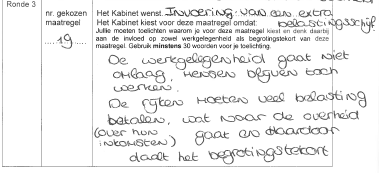 Ronde 3
nr. gekozen maatregel
.....19.....
Het Kabinet wenst Invoering van een extra belastingsschijf
Het Kabinet kiest voor deze maatregel omdat:
Jullie moeten toelichten waarom je voor deze maatregel kiest en denk daarbij
aan de invloed op zowel werkgelegenheid als begrotingstekort van deze
maatregel. Gebruik minstens 30 woorden voor je toelichting.
De werkgelegenheid gaat niet
omlaag, mensen blijven toch
werken.
De rijken moeten veel belasting
betalen, wat naar de overheid
(over hun inkomsten) gaat en daardoor
daalt het begrotingstekort